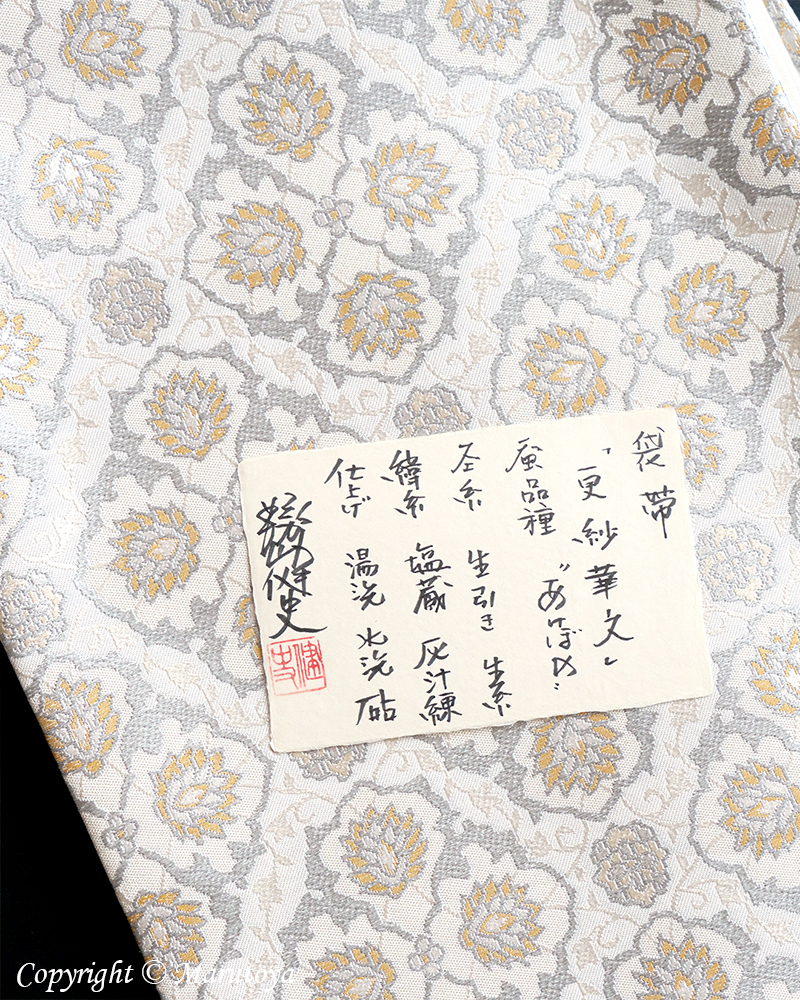 袋帯
「更紗華文」
蚕品種 〝あけぼの〟
圣糸 生引き 生糸
緯糸 塩蔵 灰汁練
仕上げ 湯洗 水洗 砧
Copyright © Marutoya